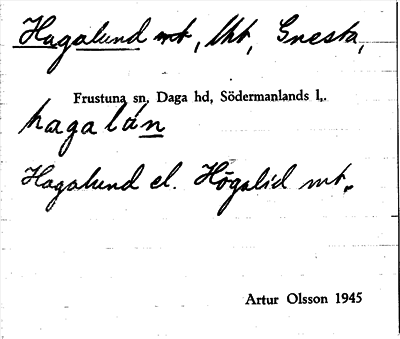 Hagalund mt, lht, Gnesta,
Frustuna sn, Daga hd, Södermanlands l.
hagalún
Hagalund el. Högalid mt.
Artur Olsson 1945